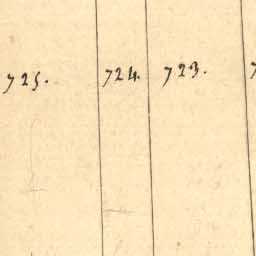 725. 724. 723.